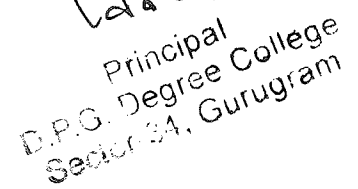 Principal
D.P.G. Degree College
Sector 34, Gurugram